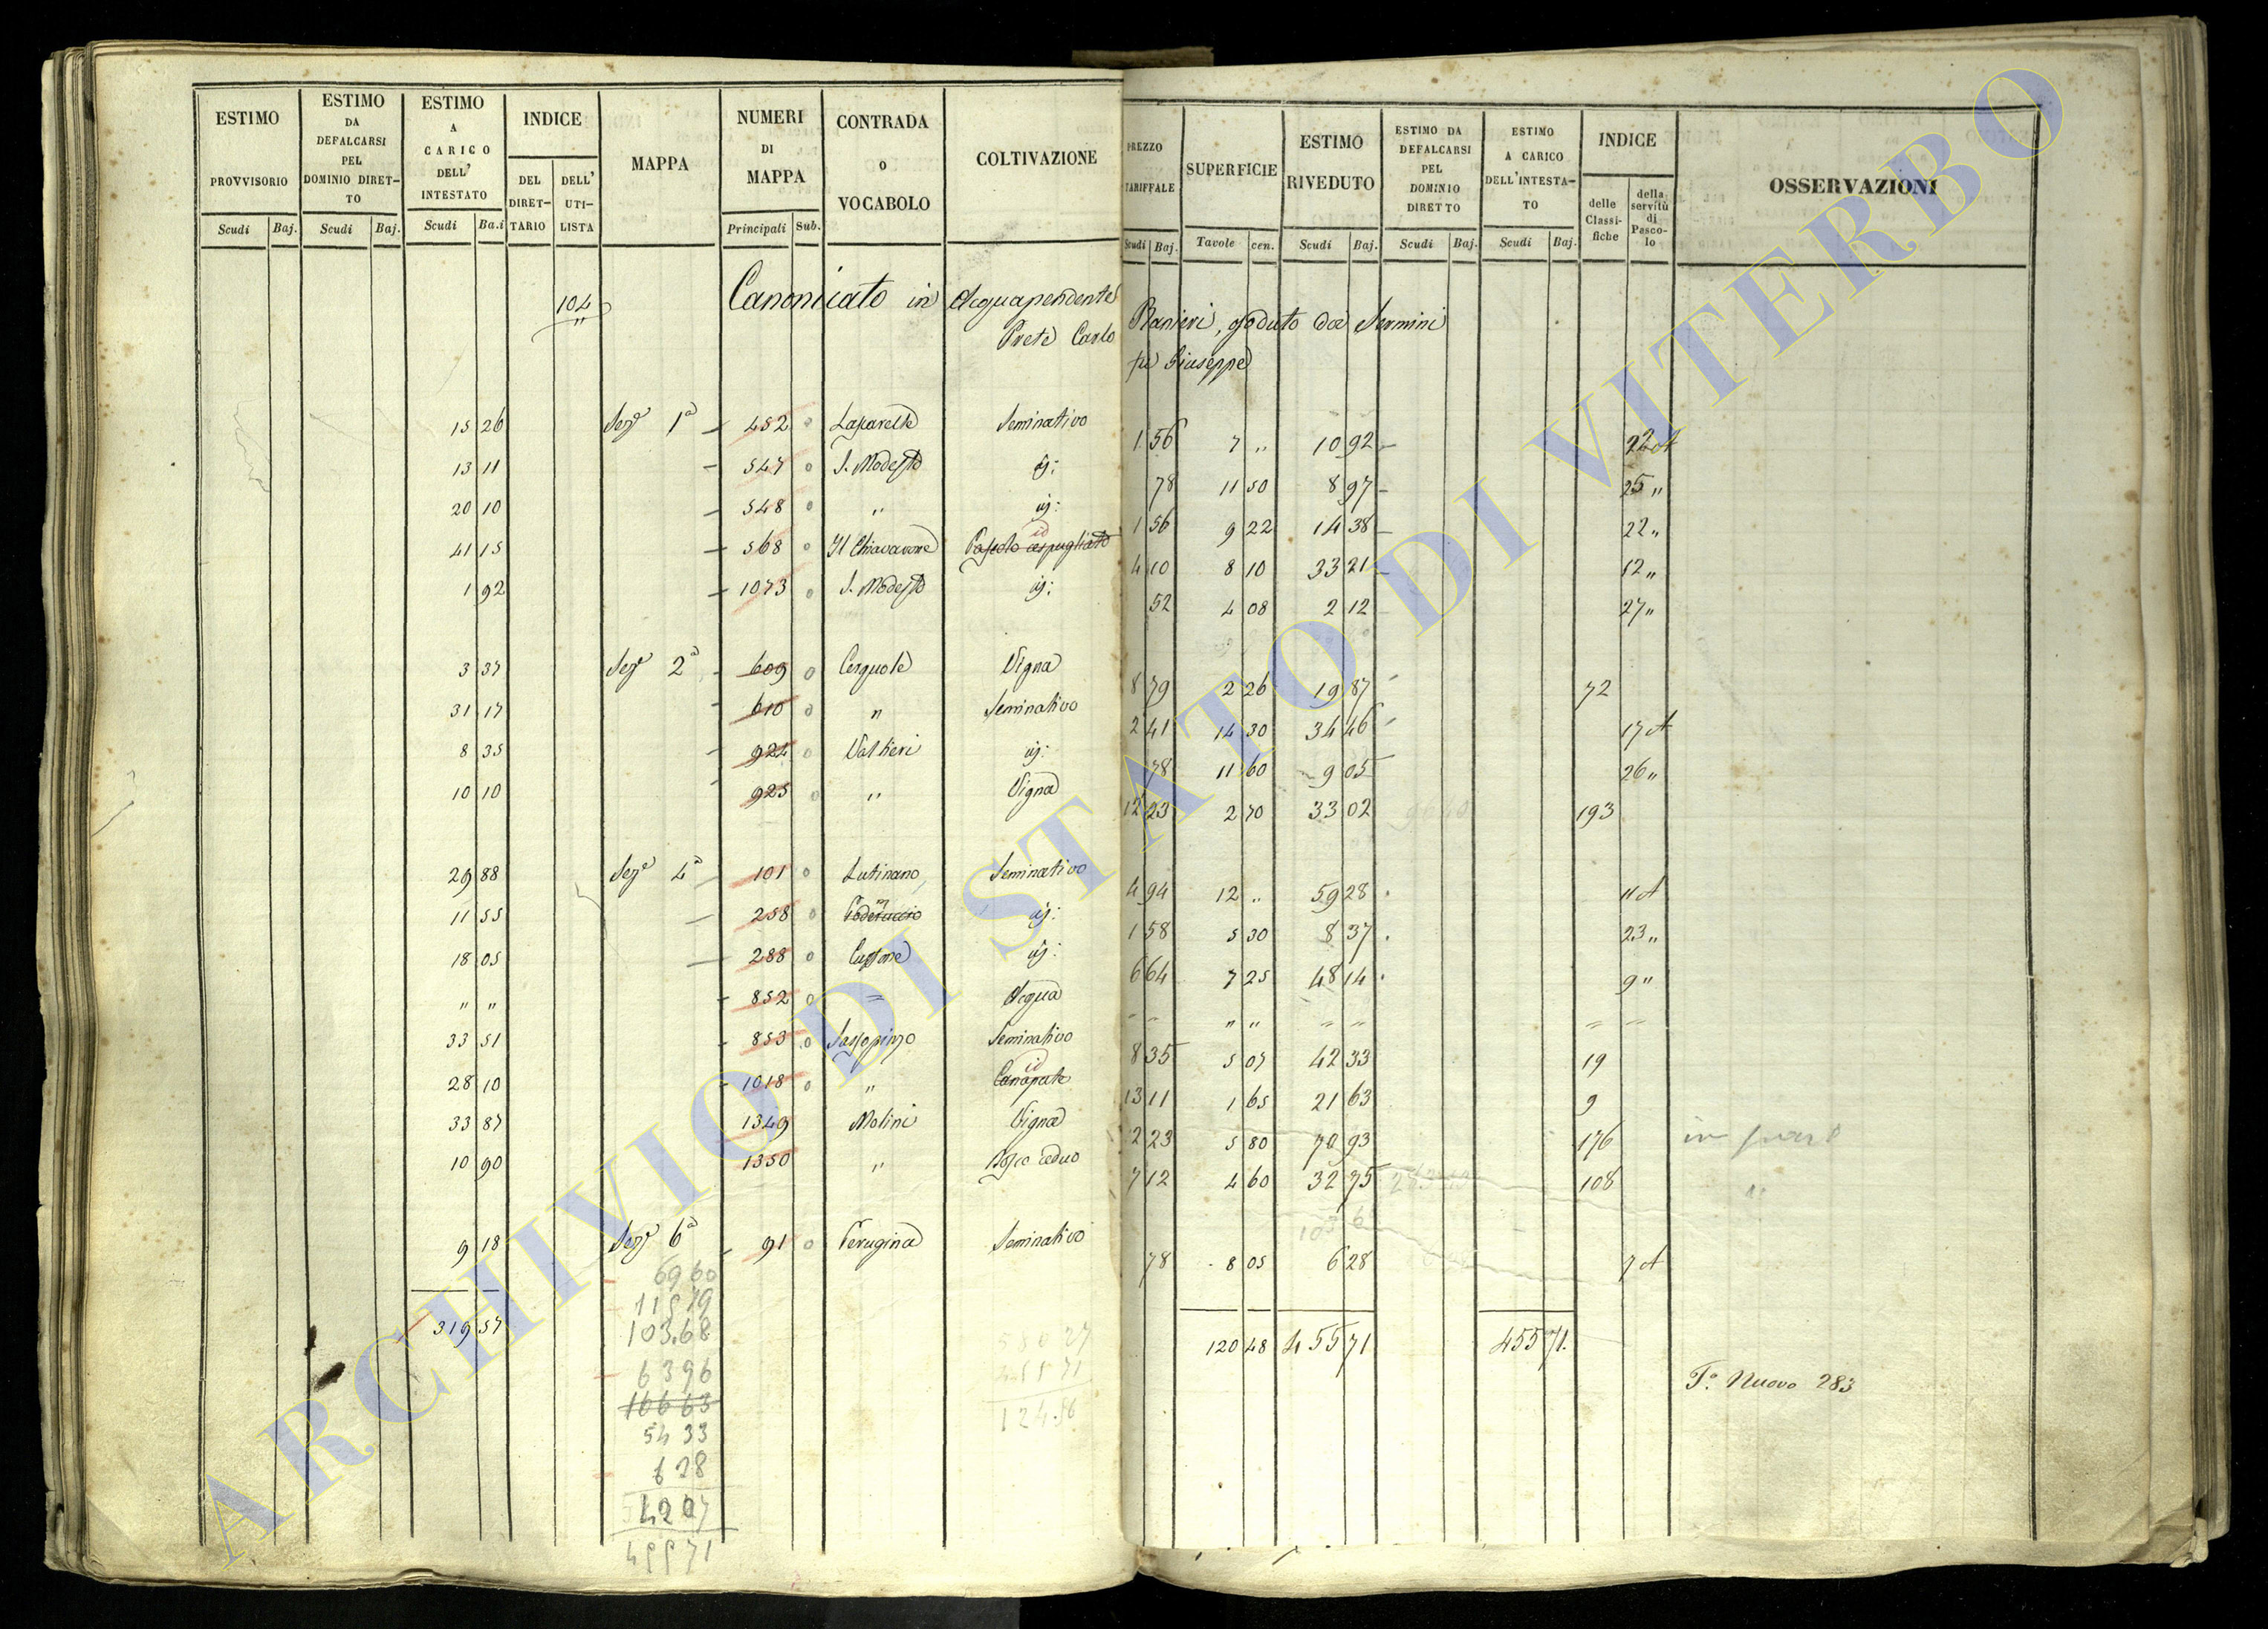 ESTIMO PROVVISORIO Scudi Baj.
ESTIMO DA DEFALCARSI PEL DOMINIO DIRET-TO Scudi Baj.
ESTIMO A CARICO DELL' INTESTATO Scudi Ba.i
INDICE DEL DIRET-TARIO DELL' UTI-LISTA
MAPPA
NUMERI DI MAPPA Principali Sub.
CONTRADA O VOCABOLO
COLTIVAZIONE
PREZZO TARIFFALE Scudi Baj.
SUPERFICIE Tavole cen.
ESTIMO RIVEDUTO Scudi Baj.
ESTIMO DA DEFALCARSI PEL DOMINIO DIRETTO Scudi Baj.
ESTIMO A CARICO DELL'INTESTA-TO Scudi Baj.
INDICE delle Classi-fiche della servitù di Pasco-lo
OSSERVAZIONI
104 Canonicato in Acquapendente Ranieri, goduto da Sermini
Prete Carlo fu Giuseppe
15 26 Sez.e 1a 452 0 Seminativo 1 56 7 " 10 92 22 A
13 11 547 0 S. Modesto id: 78 11 50 8 97 25 "
20 10 548 0 " id: 1 56 9 22 14 38 22 "
41 15 568 0 Il Chiavarone Pascolo cespugliato id 4 10 8 10 33 21 12 "
1 92 1073 0 S. Modesto id: 52 4 08 2 12 27 "
3 37 Sez.e 2a 609 0 Cerquole Vigna 8 79 2 26 19 87 72
31 17 610 0 " Seminativo 2 41 14 30 34 46 17 A
8 35 924 0 Valtieri id: 78 11 60 9 05 26 "
10 10 925 0 " Vigna 12 23 2 70 33 02 193
29 88 Sez.e 4a 101 0 Lutinano Seminativo 4 94 12 " 59 28 11 A
11 55 258 0 Poderuccio id: 1 58 5 30 8 37 23 "
18 05 288 0 id: 6 64 7 25 48 14 9 "
" " 852 0 = Acqua " "
33 51 853 0 Sassopinzo Seminativo 8 35 5 07 42 33 19
28 10 1018 0 " Canapule id 13 11 1 65 21 63 9
33 87 1349 Molini Vigna 12 23 5 80 70 93 176 in parte
10 90 1350 " Bosco ceduo 7 12 4 60 32 75 108 "
103 6
9 18 Sez.e 6a 91 0 Perugina Seminativo 78 8 05 6 28 7 A
319 57 120 48 455 71 455 71.
69 60
115 79
103.68
63 96
106 63
54 33
6 28
42 07
455 71
580 27
455 71
124.56
T.o Nuovo 283
ARCHIVIO DI STATO DI VITERBO